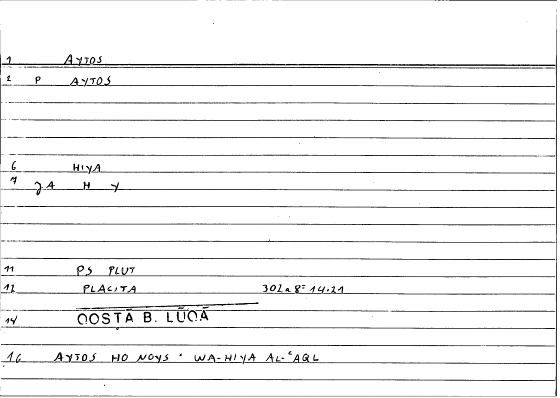 1 AYTOS
2 P AYTOS
6 HIYA
7 JA H Y
11 PS PLUT
12 PLACITA 302a8-14.21
14 QOSṬĀ B. LŪQĀ
16 AYTOS HO NOYS · WA-HIYA AL-ʿAQL